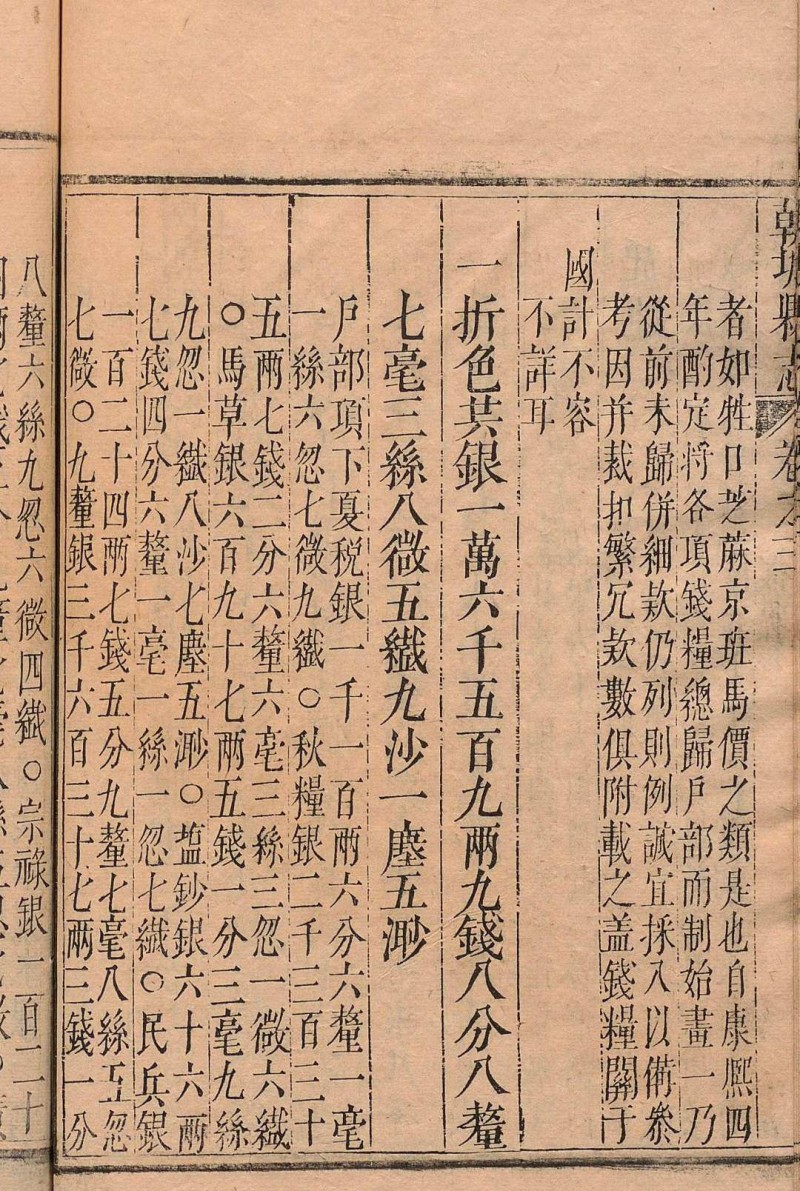 朝城縣志 卷之三
者如牲口芝蔴京班馬價之類是也自康熈四
年酌定将各項錢糧總歸戶部而制始畫一乃
從前未歸併細款仍列則例誠宜採入以備叅
考因并裁扣繁冗款數俱附載之盖錢糧關于
國計不容
不詳耳
一折色共銀一萬六千五百九兩九錢八分八釐
七毫三絲八微五纎九沙一塵五渺
戶部項下夏税銀一千一百兩六分六釐一毫
一絲六忽七微九纎○秋糧銀二千三百三十
五兩七錢二分六釐六毫三絲三忽一微六纎
○馬草銀六百九十七两五錢一分三毫九絲
九忽一纎八沙七塵五渺○塩鈔銀六十六兩
七錢四分六釐一毫一絲一忽七纎○民兵銀
一百二十四兩七錢五分九釐七毫八絲五忽
七微○九釐銀三千六百三十七两三錢一分
八釐六絲九忽六微四纎○宗祿銀一百二十